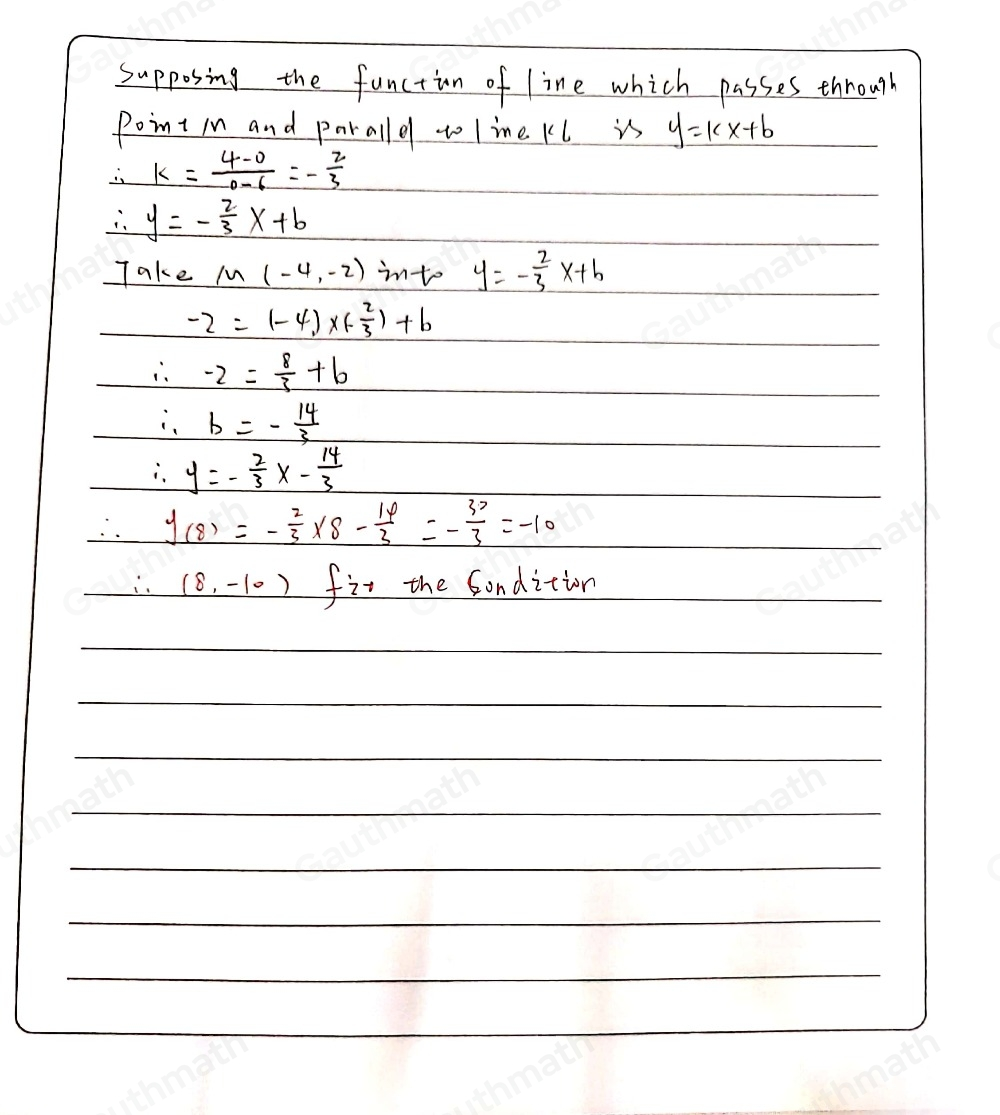 Supposing the function of line which passes through
Point M and parallel to line KL is y=kx+b
∴ k = \frac{4-0}{0-6} = -\frac{2}{3}
∴ y = -\frac{2}{3} x + b
Take M (-4,-2) into y = -\frac{2}{3} x+b
-2 = (-4)×(-\frac{2}{3}) + b
∴ -2 = \frac{8}{3} + b
∴ b = -\frac{14}{3}
∴ y = -\frac{2}{3} x - \frac{14}{3}
∴ y(8) = -\frac{2}{3} × 8 - \frac{14}{3} = -\frac{30}{3} = -10
∴ (8, -10) fit the condition